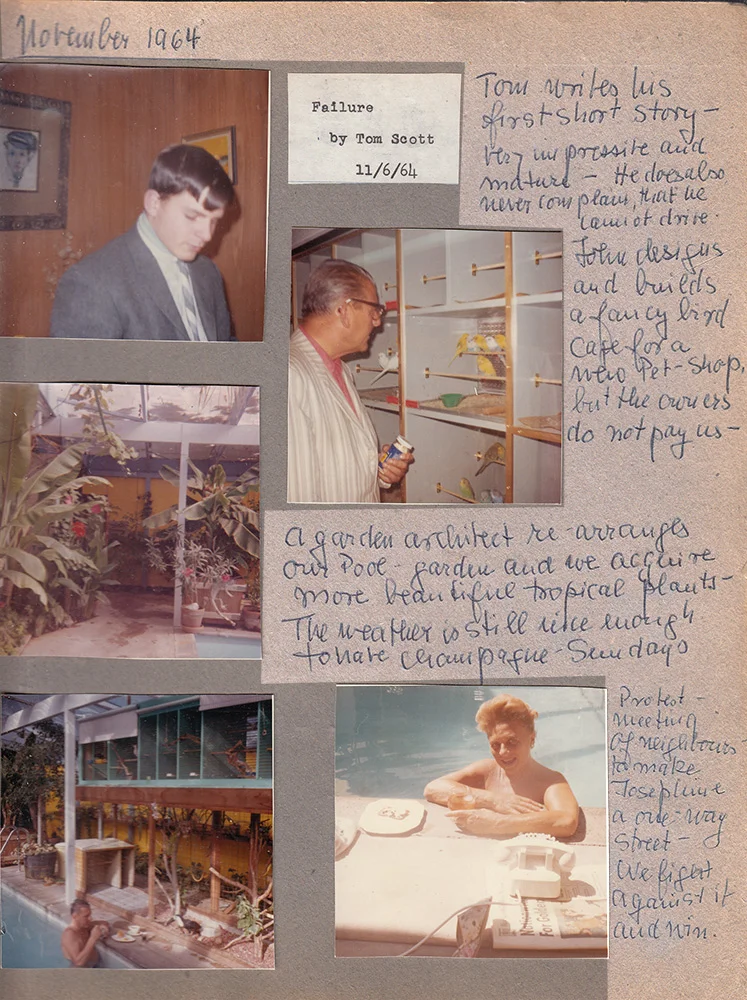 November 1964
Failure
by Tom Scott
11/6/64
Tom writes his
first short story –
very impressive and
mature – He does also
never complain, that he
cannot drive.
John designs
and builds
a fancy bird
cage for a
new Pet-shop,
but the owners
do not pay us –
A garden architect re-arranges
our Pool-garden and we acquire
more beautiful tropical plants –
The weather is still nice enough
to have champagne-Sundays
Protest –
meeting
of neighbours
to make
Josephine
a one-way
street –
We fight
against it
and win.